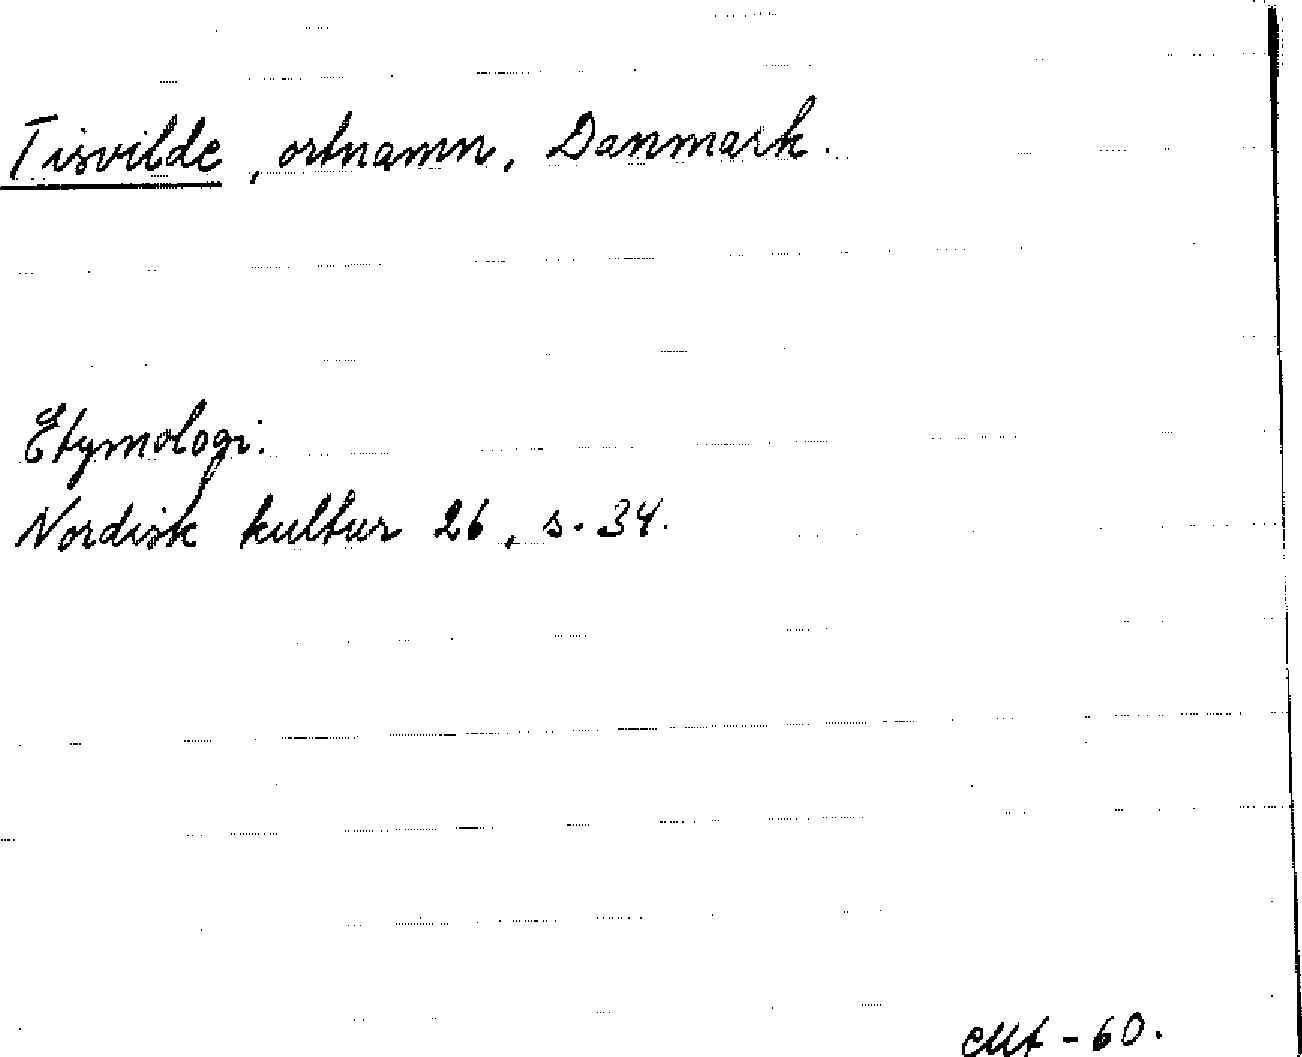 Tisvilde, ortnamn, Danmark.
Etymologi.
Nordisk kultur 26, s. 34.
-60.